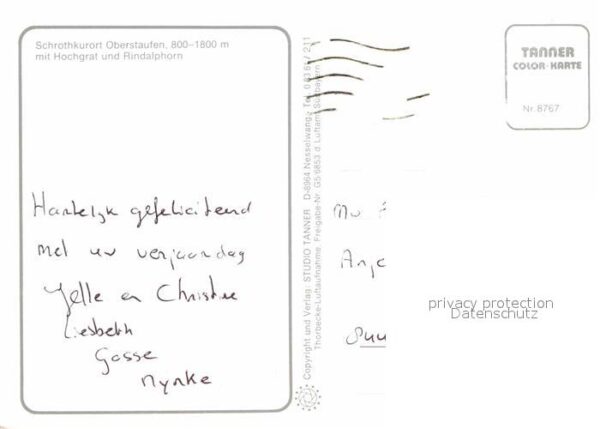 Schrothkurort Oberstaufen, 800–1800 m
mit Hochgrat und Rindalphorn
Hartelijk gefeliciteerd
met uw verjaardag
Jelle en Christine
Liesbeth
Gosse
Nynke
Copyright und Verlag: STUDIO TANNER D-8964 Nesselwang, Tel. 08361/211
Thorbecke-Luftaufnahme, Freigabe-Nr. G5/6853 d. Luftamt Südbayern
TANNER
COLOR-KARTE
Nr. 8767
privacy protection
Datenschutz